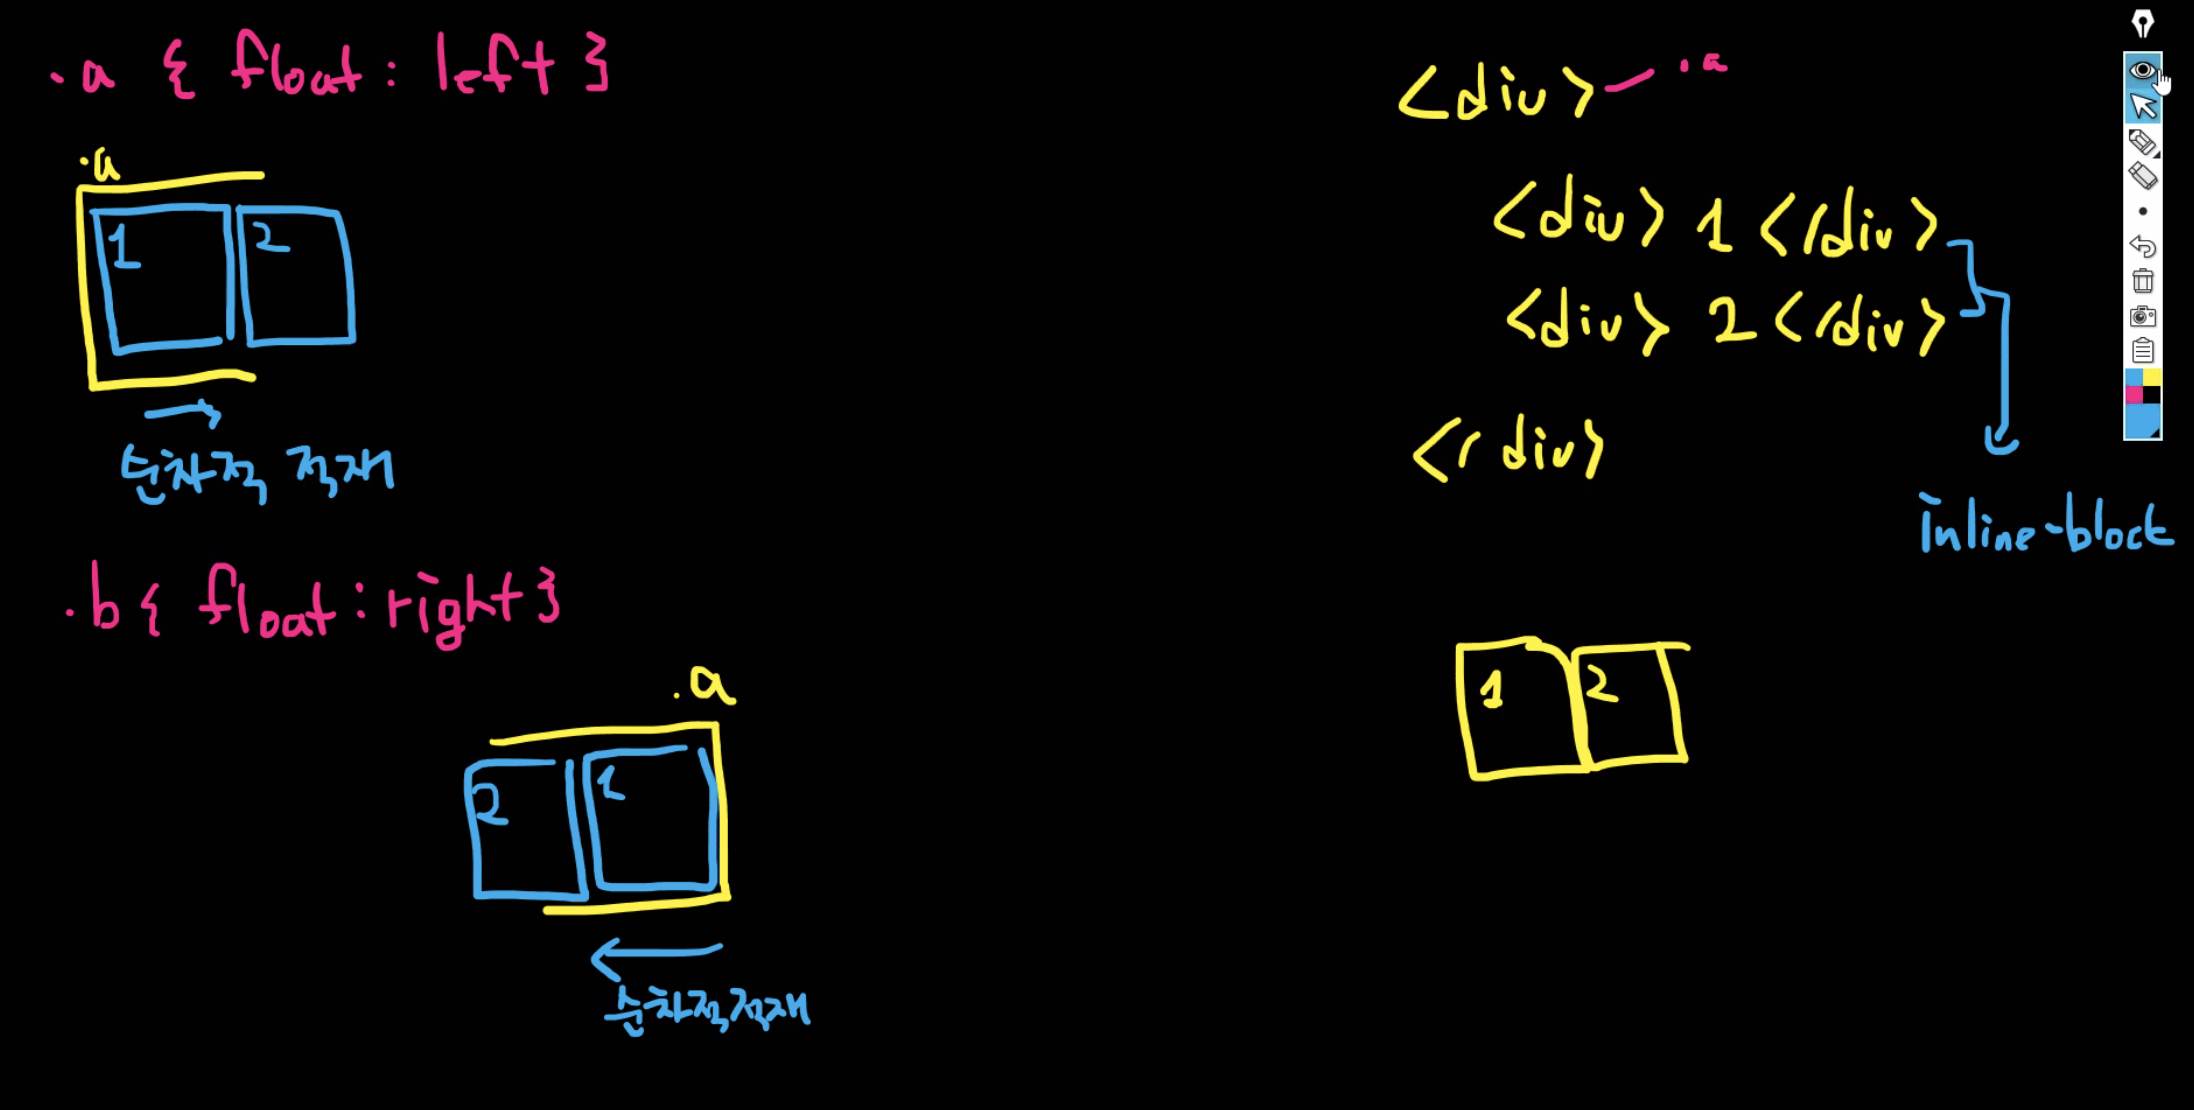 .a { float : left }
.a
1 2
순차적 적재
.b { float : right }
.a
2 1
순차적 적재
<div> .a
<div> 1 </div>
<div> 2 </div>
</div>
inline-block
1 2